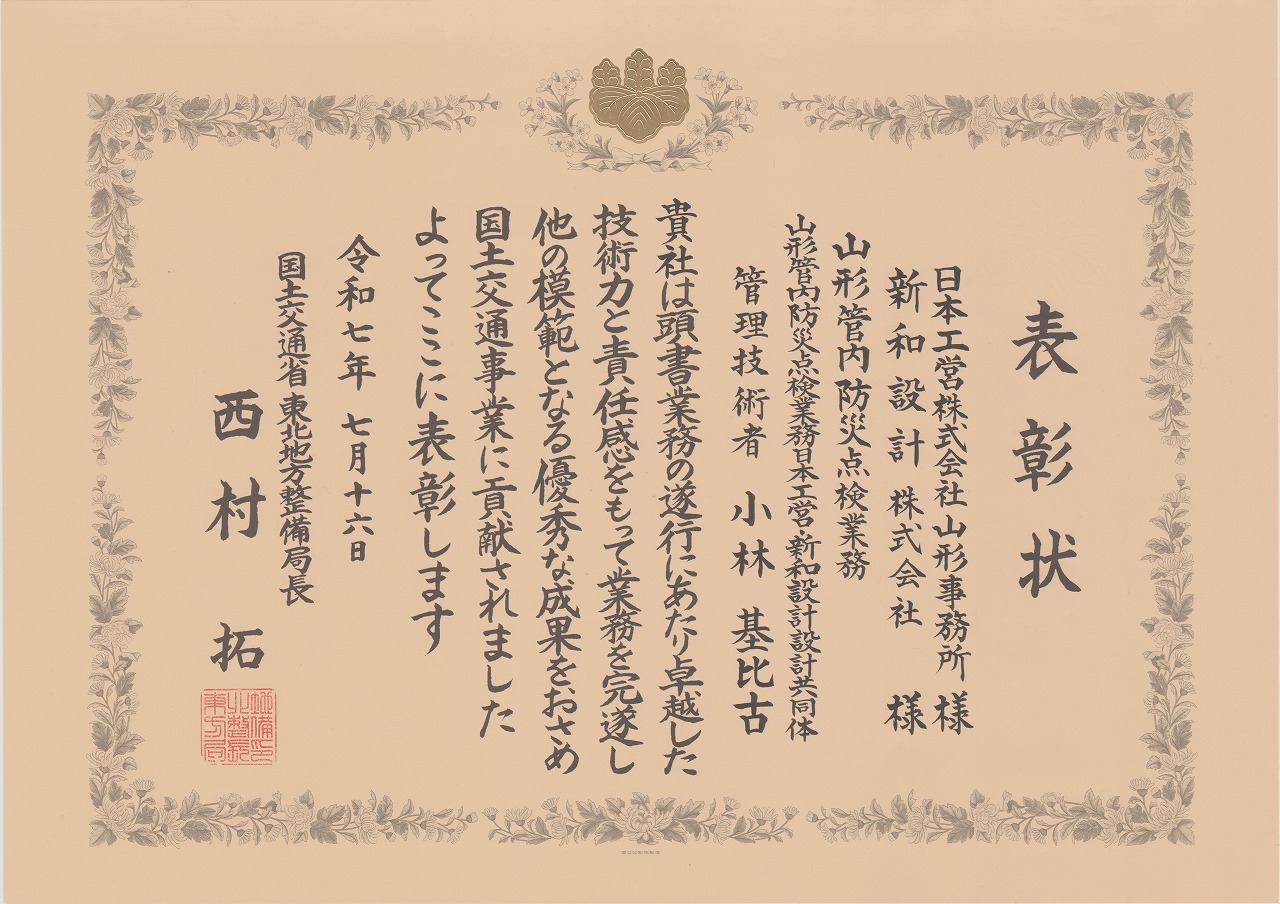 表彰状
日本工営株式会社 山形事務所 様
新和設計株式会社 様
山形管内防災点検業務
山形管内防災点検業務日本工営・新和設計設計共同体
管理技術者 小林 基比古
貴社は頭書業務の遂行にあたり卓越した
技術力と責任感をもって業務を完遂し
他の模範となる優秀な成果をおさめ
国土交通事業に貢献されました
よってここに表彰します
令和七年 七月十六日
国土交通省 東北地方整備局長
西村 拓